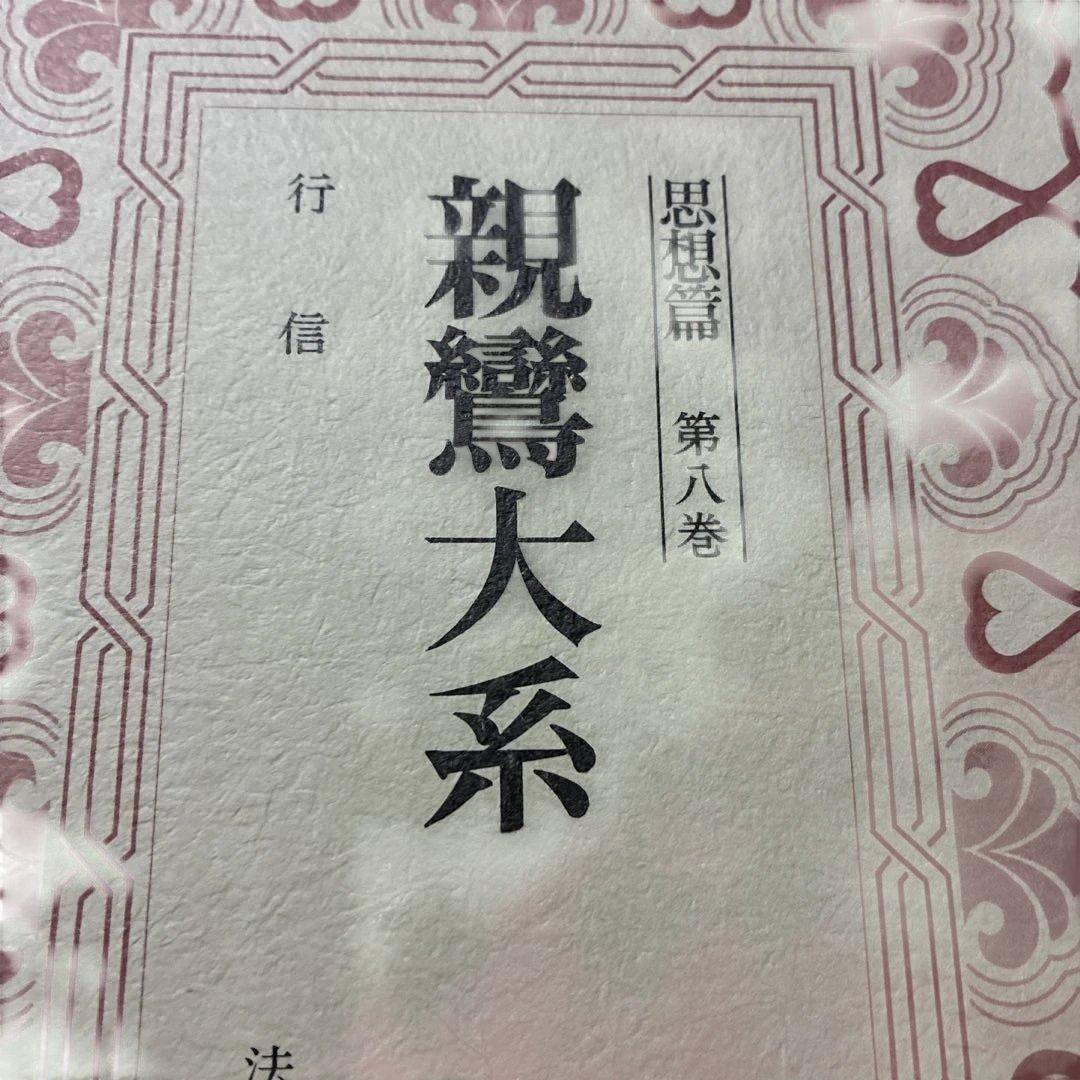 思想篇 第八巻
親鸞大系
行信
法